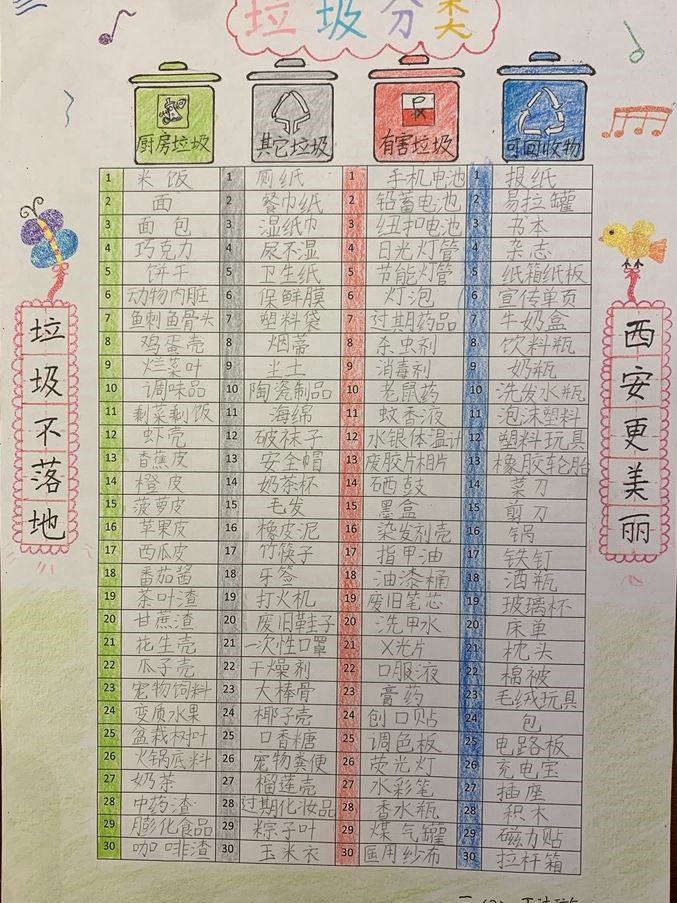 垃圾分类
厨房垃圾 其它垃圾 有害垃圾 可回收物
1 米饭 1 厕纸 1 手机电池 1 报纸
2 面 2 餐巾纸 2 铅蓄电池 2 易拉罐
3 面包 3 湿纸巾 3 纽扣电池 3 书本
4 巧克力 4 尿不湿 4 日光灯管 4 杂志
5 饼干 5 卫生纸 5 节能灯管 5 纸箱纸板
6 动物内脏 6 保鲜膜 6 灯泡 6 宣传单页
7 鱼刺鱼骨头 7 塑料袋 7 过期药品 7 牛奶盒
8 鸡蛋壳 8 烟蒂 8 杀虫剂 8 饮料瓶
9 烂菜叶 9 尘土 9 消毒剂 9 奶瓶
10 调味品 10 陶瓷制品 10 老鼠药 10 洗发水瓶
11 剩菜剩饭 11 海绵 11 蚊香液 11 泡沫塑料
12 虾壳 12 破袜子 12 水银体温计 12 塑料玩具
13 香蕉皮 13 安全帽 13 废胶片相片 13 橡胶轮胎
14 橙皮 14 奶茶杯 14 硒鼓 14 菜刀
15 菠萝皮 15 毛发 15 墨盒 15 剪刀
16 苹果皮 16 橡皮泥 16 染发剂壳 16 锅
17 西瓜皮 17 竹筷子 17 指甲油 17 铁钉
18 番茄酱 18 牙签 18 油漆桶 18 酒瓶
19 茶叶渣 19 打火机 19 废旧笔芯 19 玻璃杯
20 甘蔗渣 20 废旧鞋子 20 洗甲水 20 床单
21 花生壳 21 一次性口罩 21 X光片 21 枕头
22 瓜子壳 22 干燥剂 22 口服液 22 棉被
23 宠物饲料 23 大棒骨 23 膏药 23 毛绒玩具
24 变质水果 24 椰子壳 24 创口贴 24 包
25 盆栽树叶 25 口香糖 25 调色板 25 电路板
26 火锅底料 26 宠物粪便 26 荧光灯 26 充电宝
27 奶茶 27 榴莲壳 27 水彩笔 27 插座
28 中药渣 28 过期化妆品 28 香水瓶 28 积木
29 膨化食品 29 粽子叶 29 煤气罐 29 磁力贴
30 咖啡渣 30 玉米衣 30 医用纱布 30 拉杆箱
垃圾不落地
西安更美丽